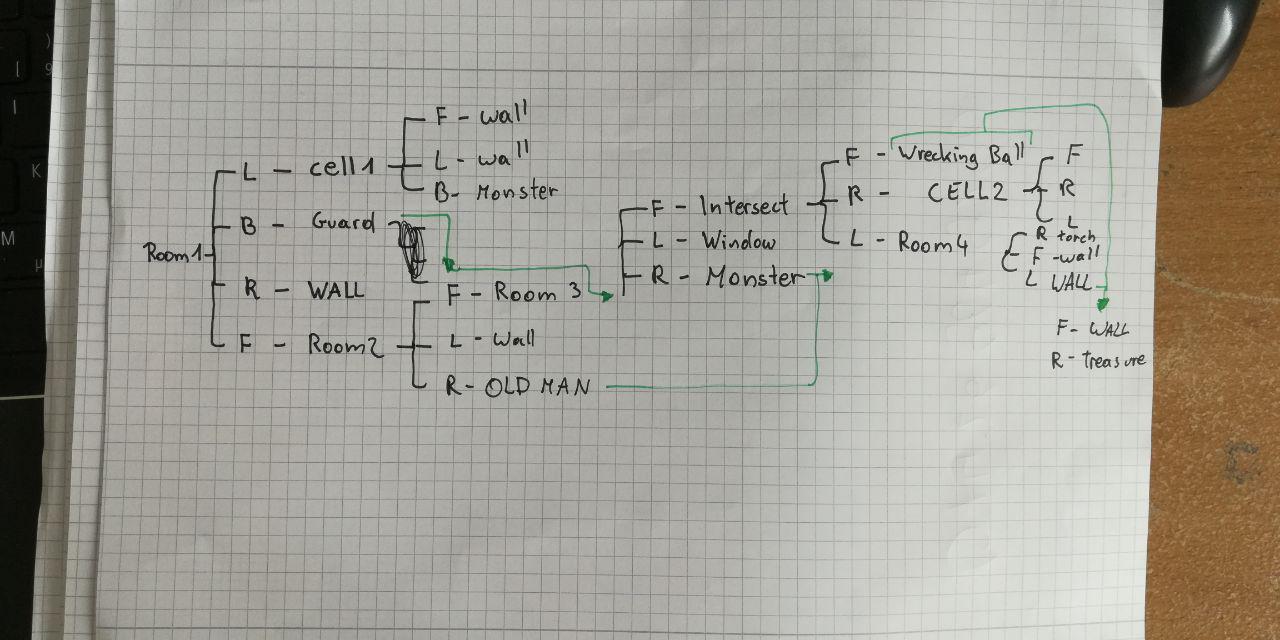 F - wall
L - wall
B - Monster
L - cell1
B - Guard
Room1
R - WALL
F - Room2
F - Room 3
L - Wall
R - OLD MAN
F - Intersect
L - Window
R - Monster
F - Wrecking Ball
R - CELL2
L - Room4
F
R
L
R torch
F - wall
L WALL
F - WALL
R - treasure